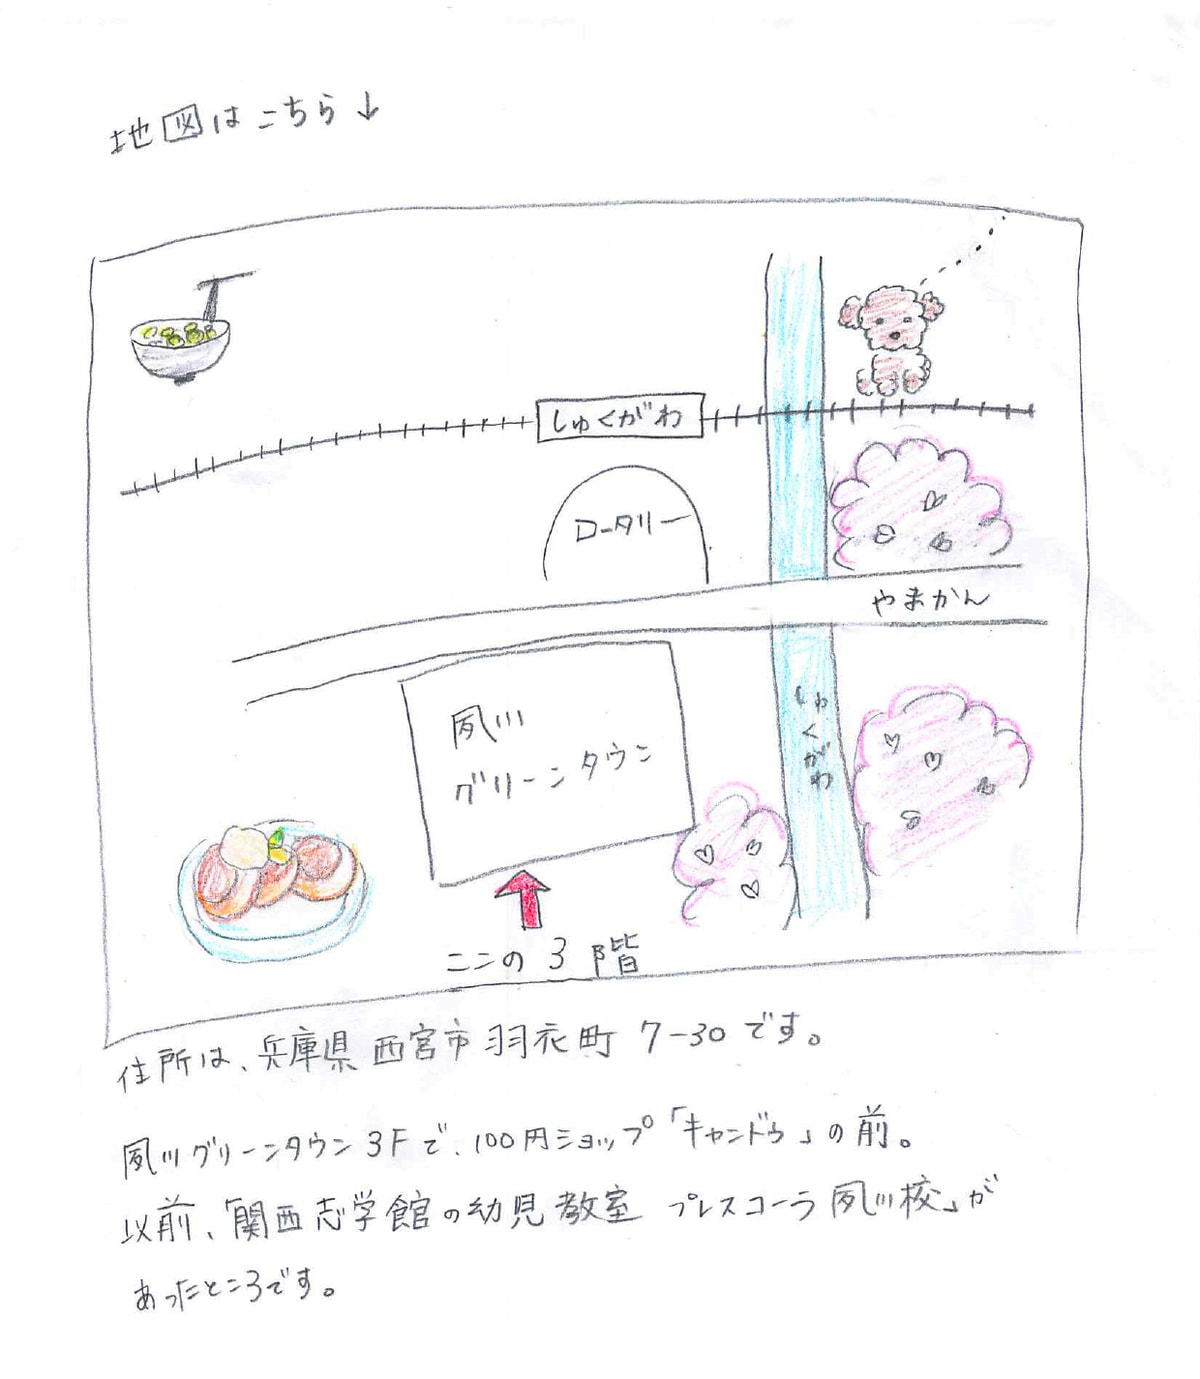 地図はこちら↓
しゅくがわ
ロータリー
やまかん
夙川
グリーンタウン
しゅくがわ
ここの3階
住所は、兵庫県西宮市羽衣町7-30です。
夙川グリーンタウン3Fで、100円ショップ「キャンドゥ」の前。
以前、「関西志学館の幼児教室 プレスコーラ夙川校」が
あったところです。